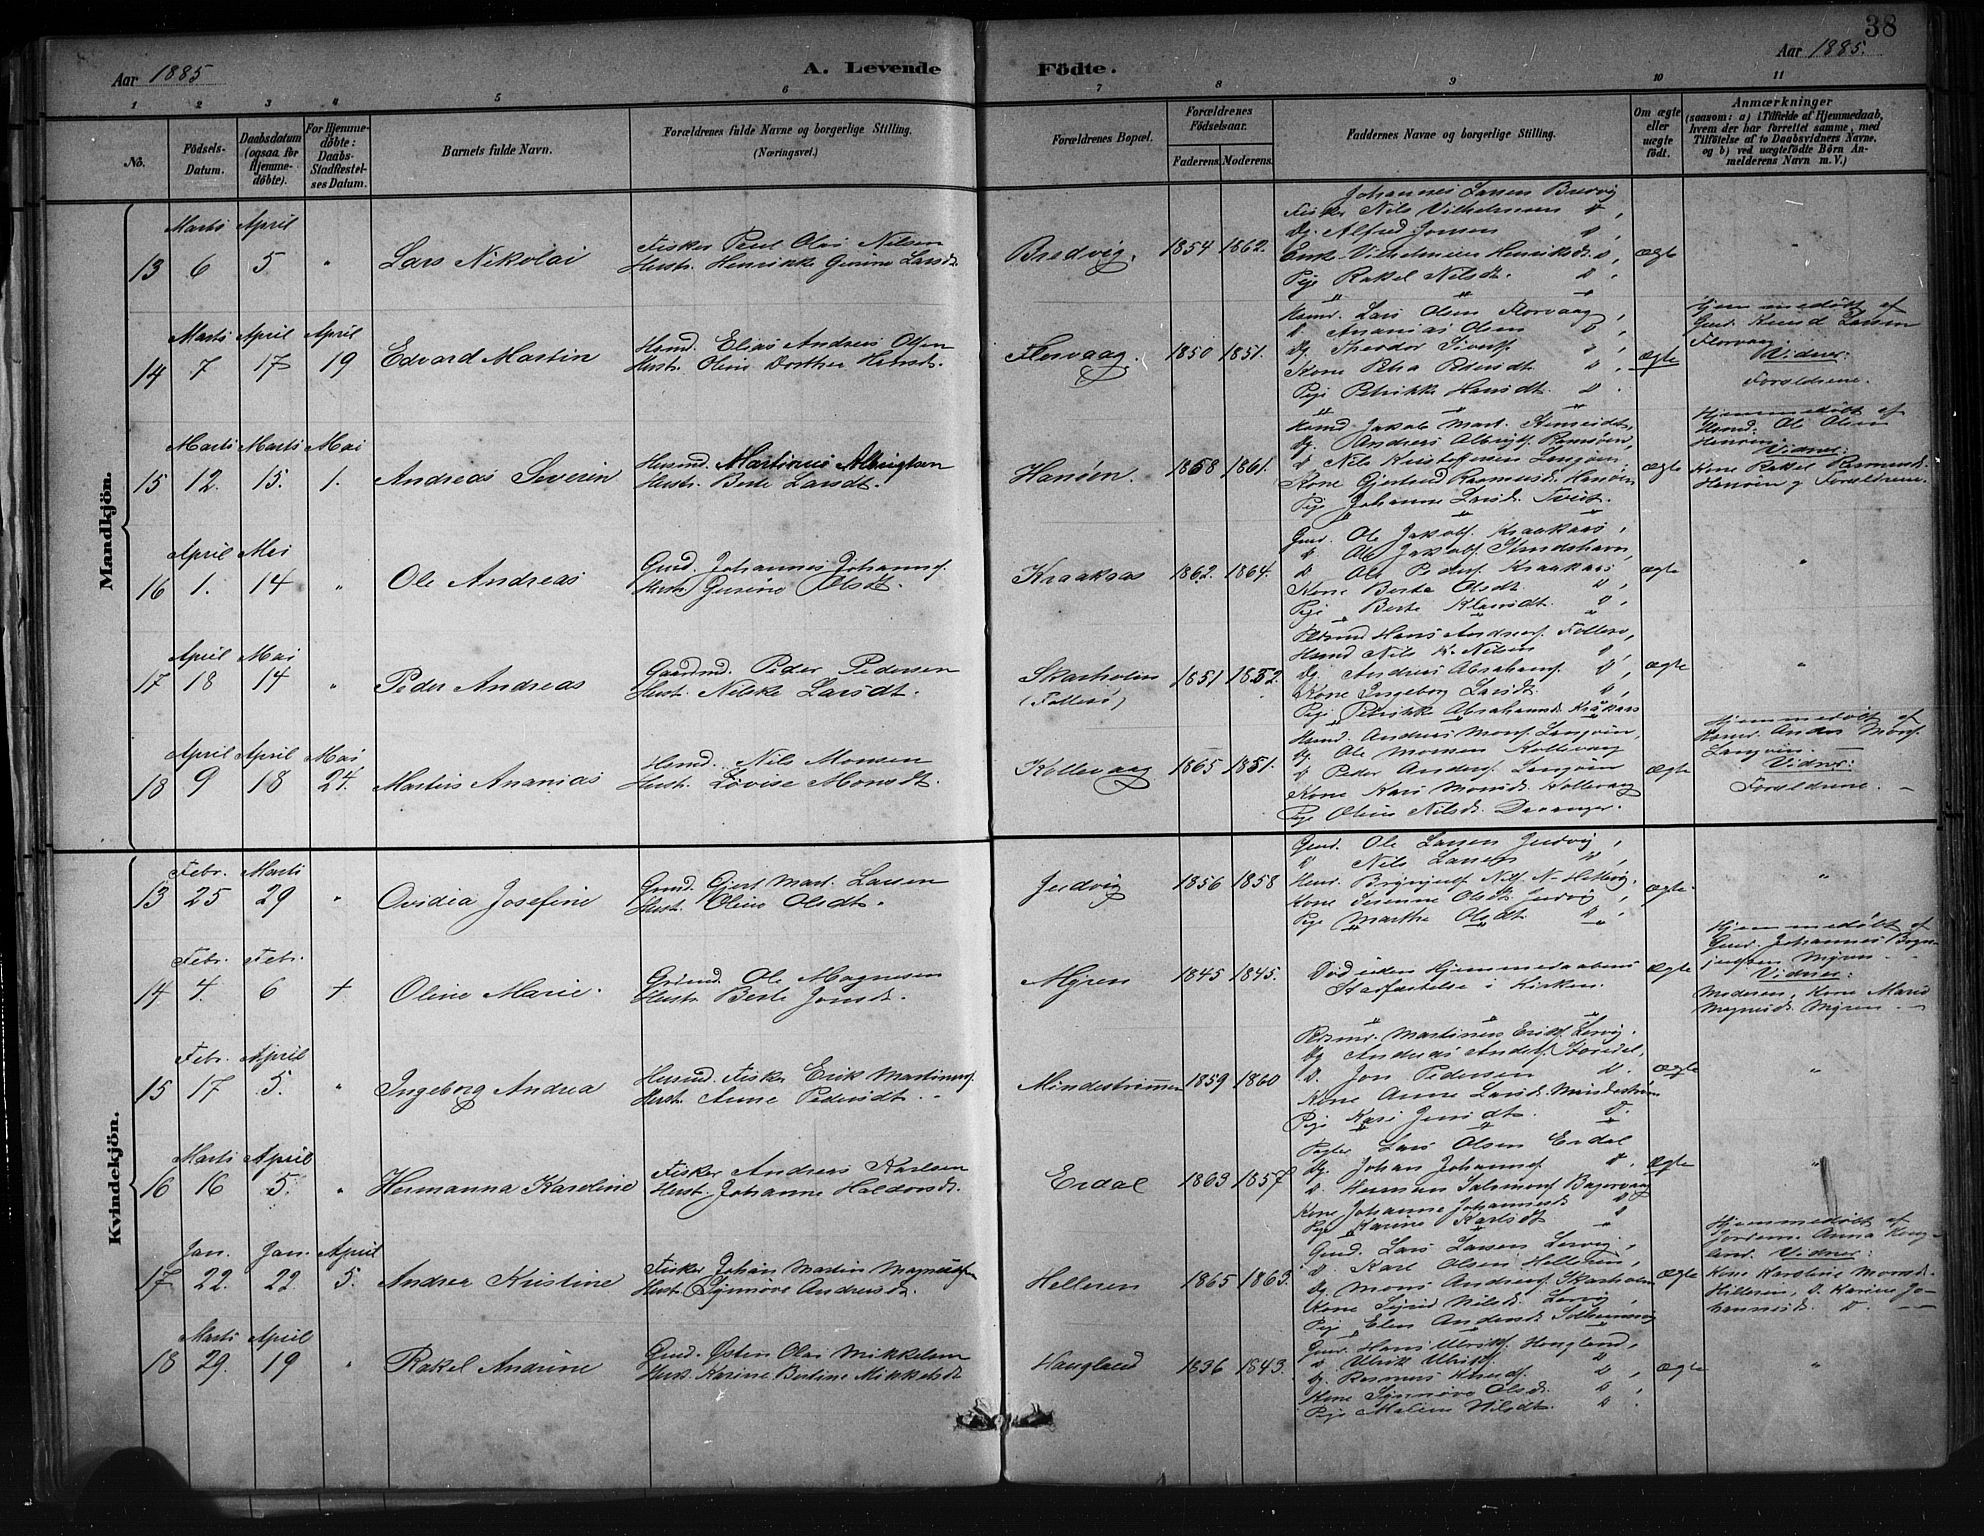 38
Aar 1885
A. Levende
Födte.
Aar 1885.
1 2 3 4 5 6 7 8 9 10 11
No.
Födsels-Datum.
Daabsdatum (ogsaa for Hjemme-döbte).
For Hjemme-döbte: Daabs-Stadfæstel-ses Datum.
Barnets fulde Navn.
Forældrenes fulde Navne og borgerlige Stilling.
(Næringsvei.)
Forældrenes Bopæl.
Forældrenes Födselsaar.
Faderens. Moderens.
Faddernes Navne og borgerlige Stilling.
Om ægte eller uægte födt.
Anmærkninger
(saasom: a) i Tilfælde af Hjemmedaab,
hvem der har forrettet samme, med
Tilföielse af to Daabsvidners Navne.
og b) ved uægtefödte Börn An-
melderens Navn m. V.)
Mandkjön.
13 Marts 6 April 5 " Lars Nikolai
Fisker Peul Olai Nilsen
Hustr. Henrikke Gurine Larsdt.
Bredvig. 1854 1862.
Johannes Larsen Bredvig
Fisker Nils Vilhelmsen D,
Ug. Alfred Jonsen D,
Enke Vilhelmine Henriksdt. D,
Pige Rakel Nilsdt. D
ægte "
14 Marts 7 April 17 April 19 Edvard Martin
Husmd. Elias Andreas Olsen
Hustr. Oline Dorthea Hansdt.
Florvaag. 1850 1851.
Husmd. Lars Olsen Florvaag,
D. Ananias Olsen D,
Ug. Theodor Siversf. D,
Kone Petra Pedersdt. D,
Pige Petrikke Hansdt. D.
ægte
Hjemmedøbt af
Gmd. Knud Larsen
Florvaag.
Vidner:
Forældrene.
15 Marts 12. Marts 15. Mai 1. Andreas Severin
Husmd. Martinus Albrigtsen
Hustr. Berte Larsdt.
Hanøen. 1858 1861.
Husmd. Jakob Mart.
Ug. Andreas Albrigtf.
D. Nils Kristoffersen
Kone Gjertrud Rasmusdt. Hanøen,
Pige Johanne Larsdt. Tveit.
ægte
Hjemmedøbt af
Husmd. Ole Olsen
Hanøen.
Vidner:
Kone Rakel Rasmusdt.
Hanøen og Forældrene.
16 April 1. Mai 14 " Ole Andreas
Gmd. Johannes Johannsf.
Hustr. Gurine Olsdt.
Kraakaas 1862. 1864.
Gmd. Ole Jakobf. Kraakaas,
D. Ole Jakobf. Strudshavn,
D Ole Pedersf. Kraakaas
Kone Berta Olsdt. D,
Pige Berte Klausdt. D,
ægte "
17 April 18 Mai 14 " Peder Andreas
Gaardmd. Peder Pedersen
Hustr. Nilske Larsdt.
Skarholm (Follesø) 1851 1852.
Pladsmd Hans Andreasf. Follesø,
Husmd Nils K. Nilsen D,
Ug. Andreas Abrahamf. D,
Kone Ingeborg Larsdt. D,
Pige Petrikke Abrahamsdt. Kråkaas
ægte "
18 April 9 April 18 Mai 24. Martin Ananias
Husmd. Nils Monsen
Hustr. Lovise Monsdt.
Kollevaag 1865 1851.
Husmd. Andreas Monsf. Langøen,
Ug. Ole Monsen Kollevaag
D Peder Andersf. Langøen
Kone Kari Monsdt. Kollevaag
Pige Oline Nilsdt. Davanger.
ægte
Hjemmedøbt af
Husmd. Anders Monsf.
Langøen.
Vidner:
Forældrene.
Kvindekjön.
13 Febr. 25 Marts 29 " Ovidia Josefine
Gmd. Gjert Mart. Larsen
Hustr. Oline Olsdt.
Jordvig 1856 1858
Gmd. Ole Larsen Jordvig,
D Nils Larsen D,
Pige Marthe Olsdt. D
ægte "
14 Febr. 4. Febr. 6 + Oline Marie.
Ole Magnusen
Hustr. Berte Jonsdt.
Myren 1845 1845.
Død uden Hjemmedaabens
Stadfæstelse i Kirken.
ægte
Hjemmedøbt af
Gmd. Johannes Bryn-
julfsen Myren
Vidner:
Moderen, Kone Maria
Magnusdt. Myren
15 Febr. 17 April 5. " Ingeborg Andrea
Husmd. Fisker Erik Martinusf.
Hustr. Anne Pedersdt.
Mindestrømmen 1859 1860
Pladsmd. Martinus Eriksf. Lervig.
Ug Andreas Andersf.
D. Jon Pedersen D.
Kone Anne Larsdt. Mindestrøm
Pige Kari Jensdt. D.
ægte "
16 Marts 16 April 5. " Hermanna Karoline
Fisker Andreas Karlsen
Hustr. Johanne Haldorsdt.
Erdal 1863 1857
Lars Olsen Erdal
Ug. Johan Johannsf. D.
D. Herman Salomonsf.
Kone Johanne Johannesdt. D
Pige Karine Karlsdt. D
ægte "
17 Jan. 22. Jan. 22. April 5. Andrea Kristine
Fisker Johan Martin Magnusen
Hustr. Synnøve Andersdt.
Helleren 1865 1863.
Gmd. Lars Larsen Lervig,
D. Karl Olsen Helleren,
Ug. Mons Andersf. Skarholm
Kone Sigrid Nilsdt. Lervig,
Pige Elen Andersdt.
ægte
Hjemmedøbt af
Jordem. Anna Haug-
land. Vidner:
Kone Karoline Monsdt.
Helleren, D. Karine Jo-
hannesdt. D.
18 Marts 29. April 19 " Rakel Andrine
Gmd. Østen Olai Mikkelsen
Hust. Karine Bertine Mikkelsdt.
Haugland 1836 1843.
Gmd. Hans Ulriksf. Haugland,
D. Ulrik Ulriksf. D
Ug. Rasmus Knudsf. D,
Kone Synnøve Olsdt. D,
Pige Malene Nilsdt. D.
ægte "